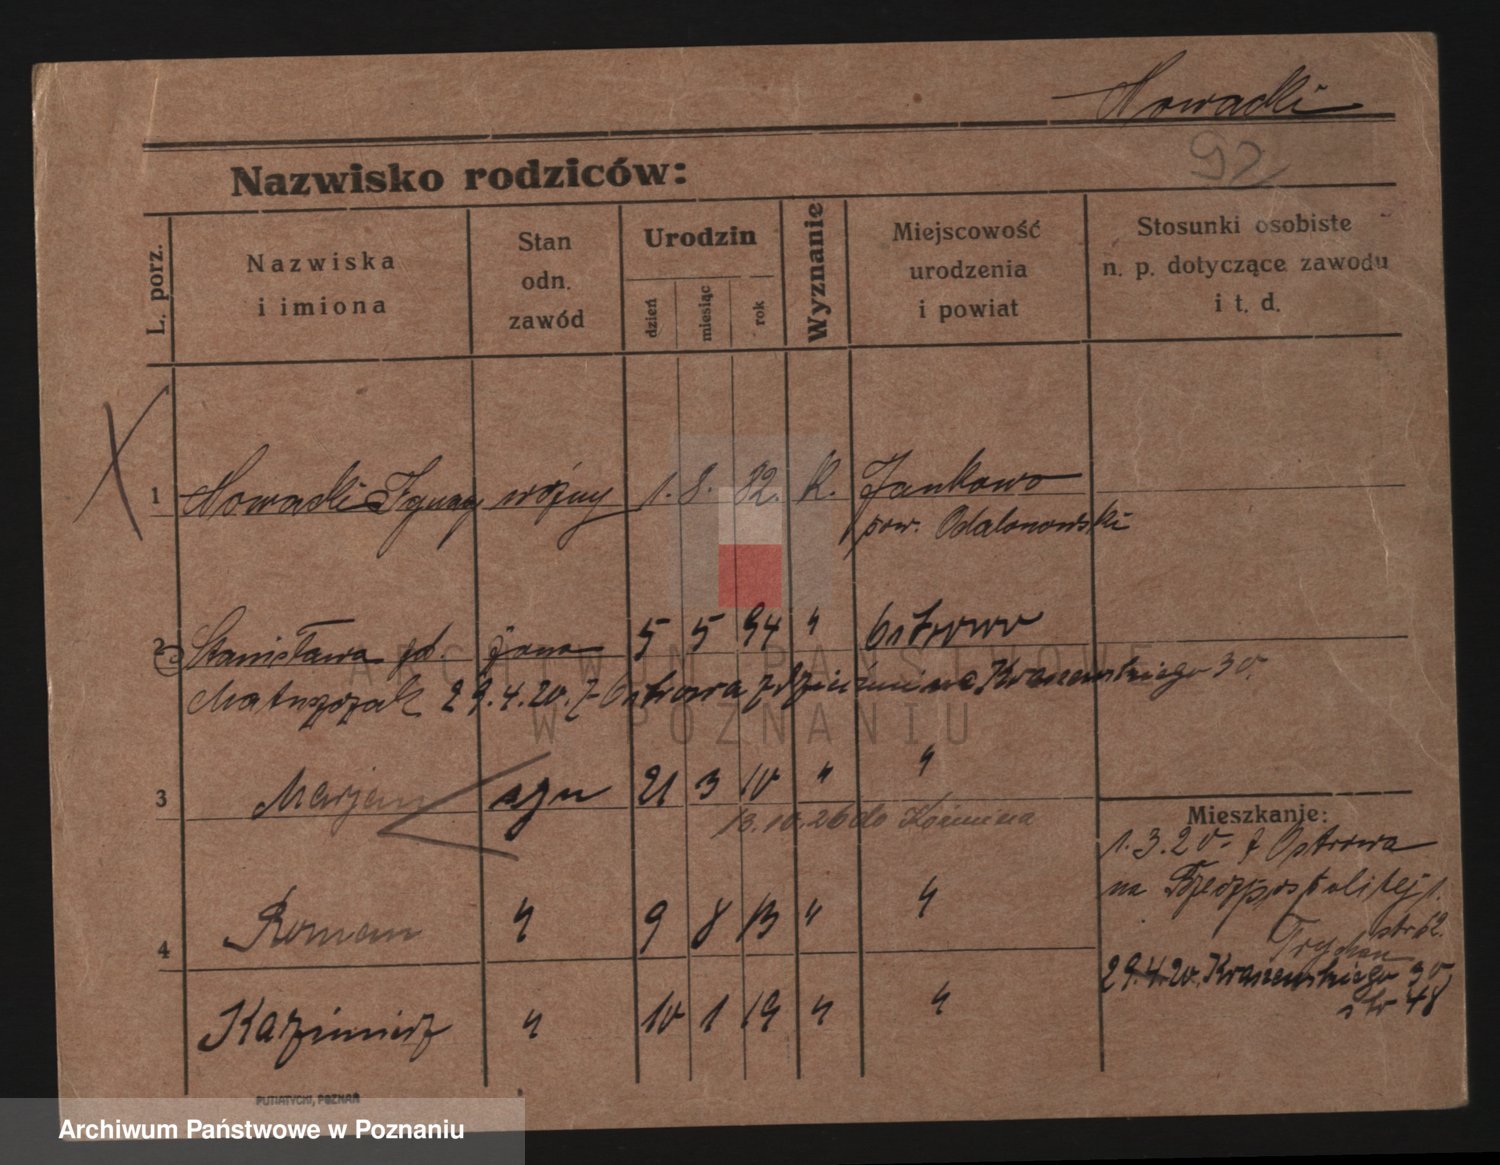 Nowacki
92
Nazwisko rodziców:
L. porz.
Nazwiska
i imiona
Stan
odn.
zawód
Urodzin
dzień
miesiąc
rok
Wyznanie
Miejscowość
urodzenia
i powiat
Stosunki osobiste
n. p. dotyczące zawodu
i t. d.
1 Nowacki Ignacy woźny 1. 8. 82. K. Jankowo
pow. Odalanowski
2 Stanisława zd. żona 5 5 94 " Ostrowo
Matuszczak 29.4.20. z Ostrowa z dziećmi na Kraszewskiego 30.
3 Marjan syn 21 3 10 " "
13.10.26 do Koźmina
4 Roman " 9 8 13 " "
Kazimierz " 10 1 19 " "
Mieszkanie:
1.3.20. z Ostrowa
na Rzeczpospolitej 1.
str 62.
29.4.20. Kraszewskiego 30
str 48
PUTIATYCKI, POZNAŃ
ARCHIWUM PAŃSTWOWE
W POZNANIU
Archiwum Państwowe w Poznaniu